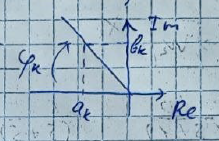 Im
b_k
φ_k
a_k
Re